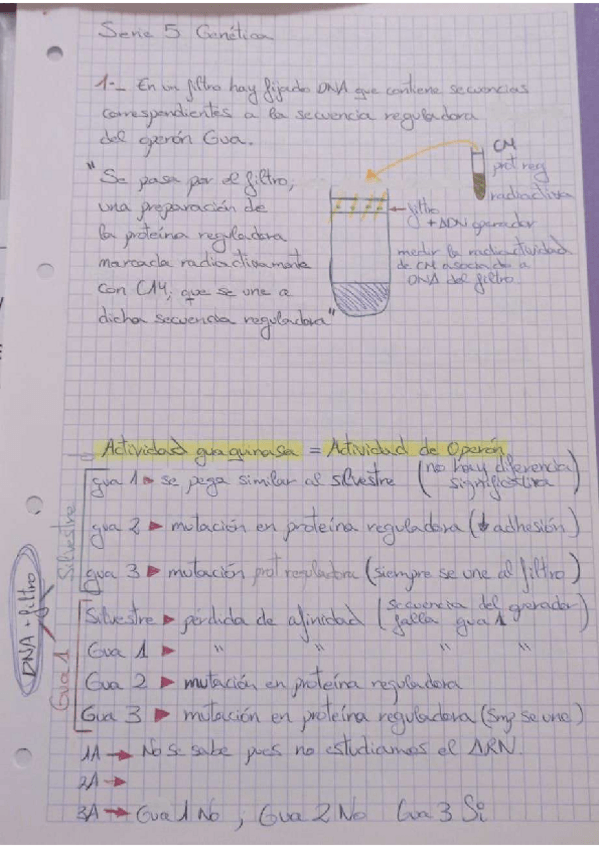 Serie 5 Genética
1-_ En un filtro hay fijado DNA que contiene secuencias
correspondientes a la secuencia reguladora
del operón Gua.
"Se pasa por el filtro,
una preparación de
la proteína reguladora
marcada radiactivamente
con C14, que se une a
dicha secuencia reguladora"
C14
prot reg
radiactiva
filtro
+ ADN operador
medir la radioactividad
de C14 asociado a
DNA del filtro.
Actividad guaquinasa = Actividad de Operón
DNA - filtro
Silvestre
gua 1 ► se pega similar al silvestre (no hay diferencia significativa)
gua 2 ► mutación en proteína reguladora (↓ adhesión)
gua 3 ► mutación prot reguladora (siempre se une al filtro)
Gua 1
Silvestre ► pérdida de afinidad (secuencia del operador falla gua 1)
Gua 1 ► " " " "
Gua 2 ► mutación en proteína reguladora
Gua 3 ► mutación en proteína reguladora (Smp se une)
1A → No se sabe pues no estudiamos el ARN.
2A →
3A → Gua 1 No , Gua 2 No Gua 3 Sí